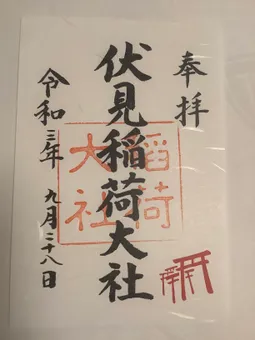 奉拝
伏見稲荷大社
稲荷
大社
令和三年 九月二十八日